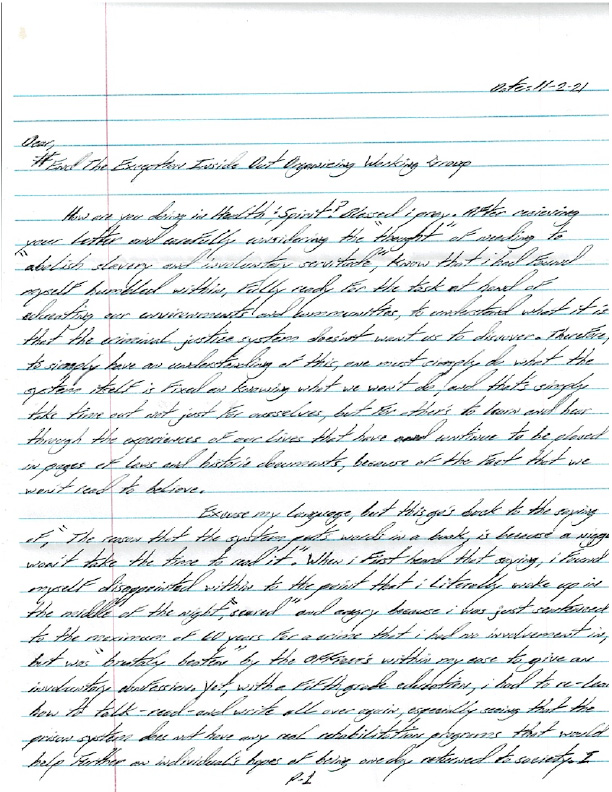 Date: 11-2-21
Dear,
# End The Exception Inside Out Organizing Working Group
How are you doing in Health & Spirit? Blessed i pray. After recieving
your letter and carefully considering the "thought" of needing to
"abolish slavery and involuntary servitude", know that i had found
myself humbled within, fully ready for the task at hand of
educating our environments and communities, to understand what it is
that the criminal justice system doesn't want us to discover. Therefore,
to simply have an understanding of this, one must simply do what the
system itself is fixed on knowing what we won't do, and that's simply
take time out not just for ourselves, but for other's to learn and hear
through the experiences of our lives that have continue to be placed
in pages of laws and historic documents, because of the fact that we
won't read to believe.
Excuse my language, but this go's back to the saying
of, "The reason that the system puts words in a book, is because a nigga
won't take the time to read it". When i first heard that saying, i found
myself disappointed within to the point that i literally woke up in
the middle of the night, "scared" and angry because i was just sentenced
to the maximum of 60 years for a crime that i had no involvement in,
but was "brutally beaten" by the officer's within my case to give an
involuntary confession. Yet, with a fifth grade education, i had to re-lear
how to talk-read-and write all over again, especially seeing that the
prison system does not have any real rehabilitative programs that would
help further an individual's hopes of being one day returned to society. I
P-1